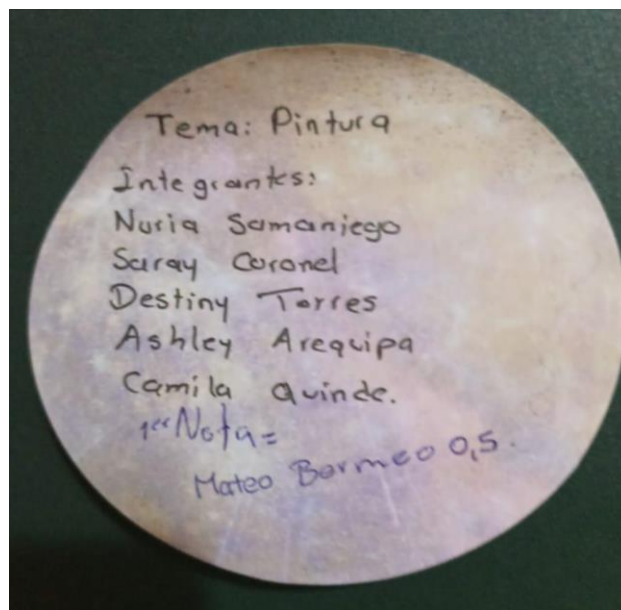 Tema: Pintura
Integrantes:
Nuria Samaniego
Saray Coronel
Destiny Torres
Ashley Arequipa
Camila Quinde.
1er Nota=
Mateo Bermeo 0,5.